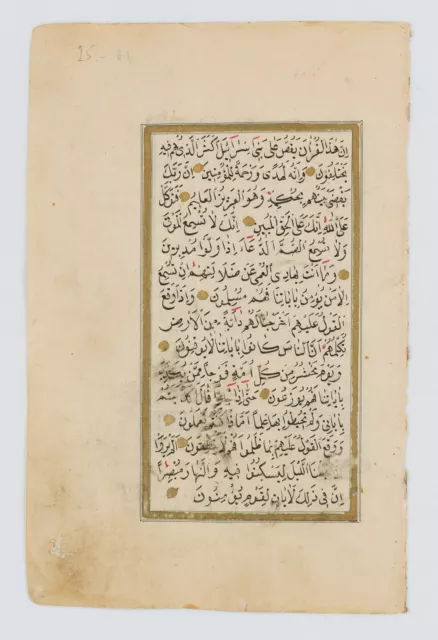 25
ان هذا القران يقص على بنى اسرائيل اكثر الذى هم فيه
يختلفون وانه لهدى ورحمة للمؤمنين ان ربك
يقضى بينهم بحكمه وهو العزيز العليم فتوكل
على الله انك على الحق المبين انك لا تسمع الموتى
ولا تسمع الصم الدعاء اذا ولوا مدبرين
وما انت بهادى العمى عن ضلالتهم ان تسمع
الا من يؤمن باياتنا فهم مسلمون واذا وقع
القول عليهم اخرجنا لهم دابة من الارض
تكلمهم ان الناس كانوا باياتنا لا يوقنون
ويوم نحشر من كل امة فوجا ممن يكذب
باياتنا فهم يوزعون حتى اذا قال
باياتى ولم تحيطوا بها علما اماذا كنتم تعملون
ووقع القول عليهم بما ظلموا فهم لا ينطقون الم يروا
الليل ليسكنوا فيه والنهار مبصرا
ان فى ذلك لايات لقوم يؤمنون